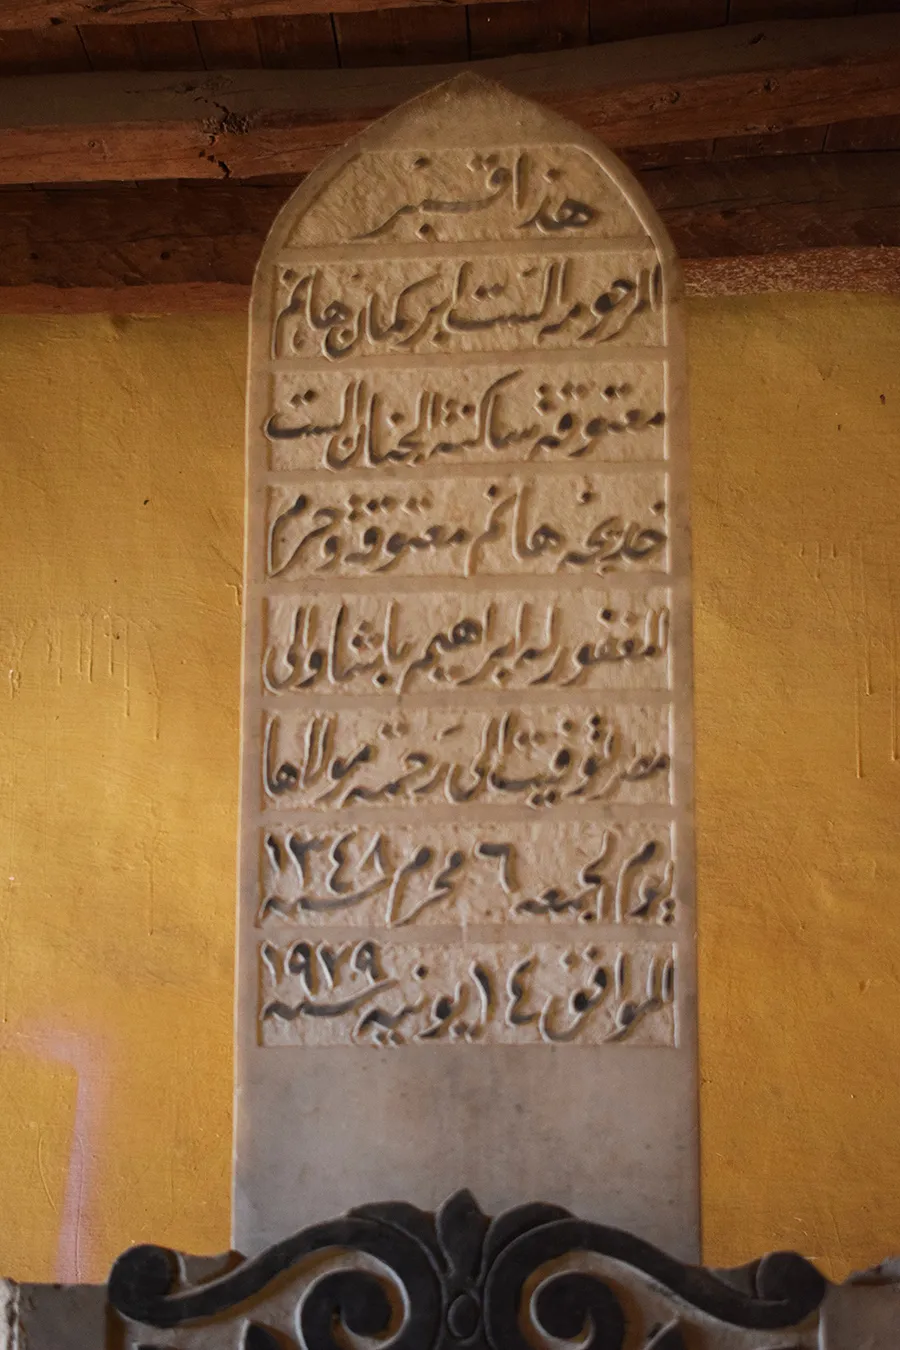 هذا قبر
المرحومه الست ابركمان هانم
معتوقة ساكنة الجنان الست
خديجه هانم معتوقة وحرم
المغفور له ابراهيم باشا والى
مصر توفيت الى رَحمة مولاها
يوم الجمعه ٦ محرم سنه ١٣٤٨
الموافق ١٤ يونيه سنه ١٩٢٩